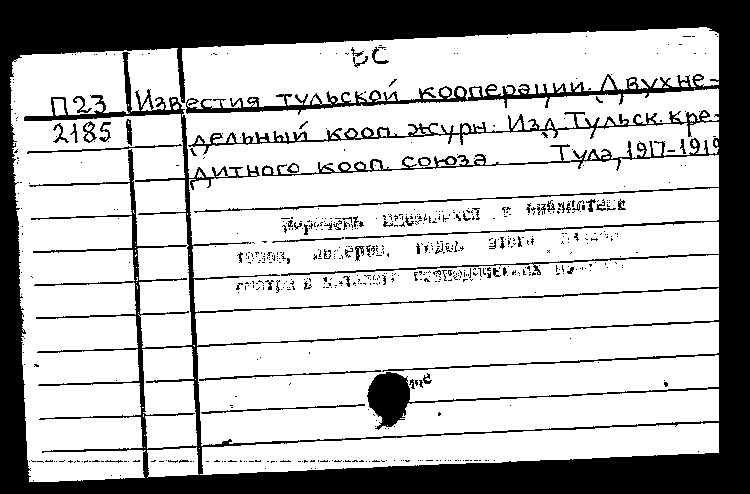 ВС
П23 Известия тульской кооперации. Двухне-
2185 дельный кооп. журн. Изд. Тульск. кре-
дитного кооп. союза. Тула, 1917-1919
Перечень имеющихся в библиотеке
томов, номеров, годов этого
смотри в каталоге периодических